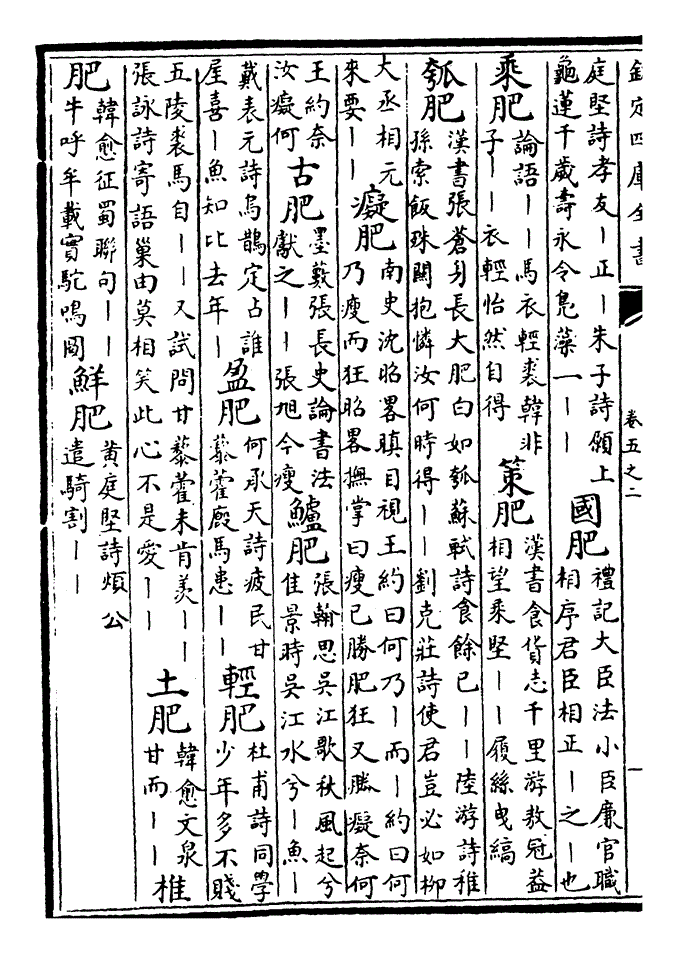 欽定四庫全書 卷五之二
庭堅詩孝友丨正丨朱子詩願上
龜蓮千歲壽永令鳧藻一丨丨
國肥
禮記大臣法小臣廉官職
相序君臣相正丨之丨也
乘肥
論語丨丨馬衣輕裘韓非
子丨丨衣輕怡然自得
策肥
漢書食貨志千里游敖冠蓋
相望乘堅丨丨履絲曳縞
瓠肥
漢書張蒼身長大肥白如瓠蘇軾詩食餘已丨丨陸游詩稚
孫索飯殊關抱憐汝何時得丨丨劉克莊詩使君豈必如柳
大丞相元
來要丨丨
癡肥
南史沈昭畧瞋目視王約曰何乃丨而丨約曰何
乃瘦而狂昭畧撫掌曰瘦已勝肥狂又勝癡奈何
王約奈
汝癡何
古肥
墨藪張長史論書法
獻之丨丨張旭今瘦
鱸肥
張翰思吳江歌秋風起兮
佳景時吳江水兮丨魚丨
戴表元詩烏鵲定占誰
屋喜丨魚知比去年丨
盈肥
何承天詩疲民甘
藜藿廐馬患丨丨
輕肥
杜甫詩同學
少年多不賤
五陵裘馬自丨丨又試問甘藜藿未肯羨丨丨
張詠詩寄語巢由莫相笑此心不是愛丨丨
土肥
韓愈文泉
甘而丨丨
椎
肥
韓愈征蜀聯句丨丨
牛呼牟載實駝鳴圔
鮮肥
黃庭堅詩煩公
遣騎割丨丨